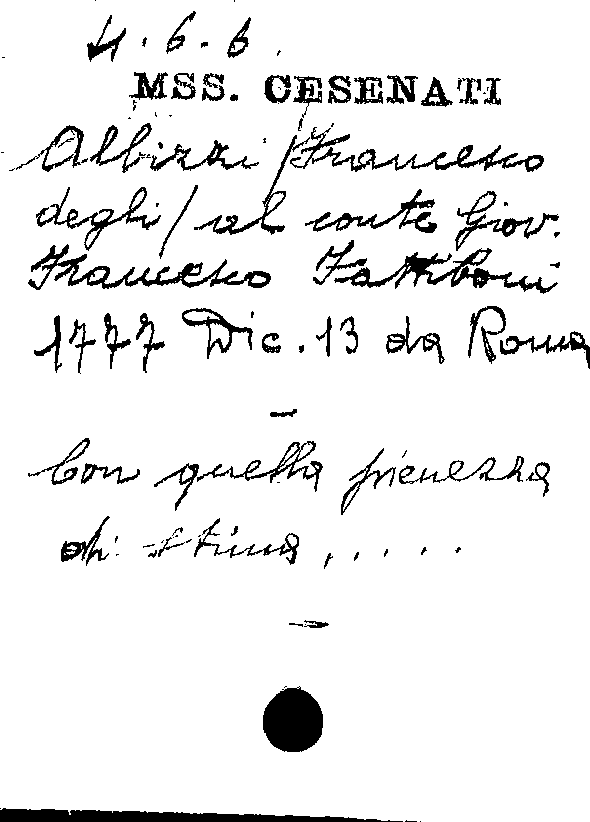 4.6.6.
MSS. CESENATI
Albizzi / Francesco
degli / al conte Giov.
Francesco Fattiboni
1777 Dic. 13 da Roma
—
Con quella pienezza
di stima . . . . .
—